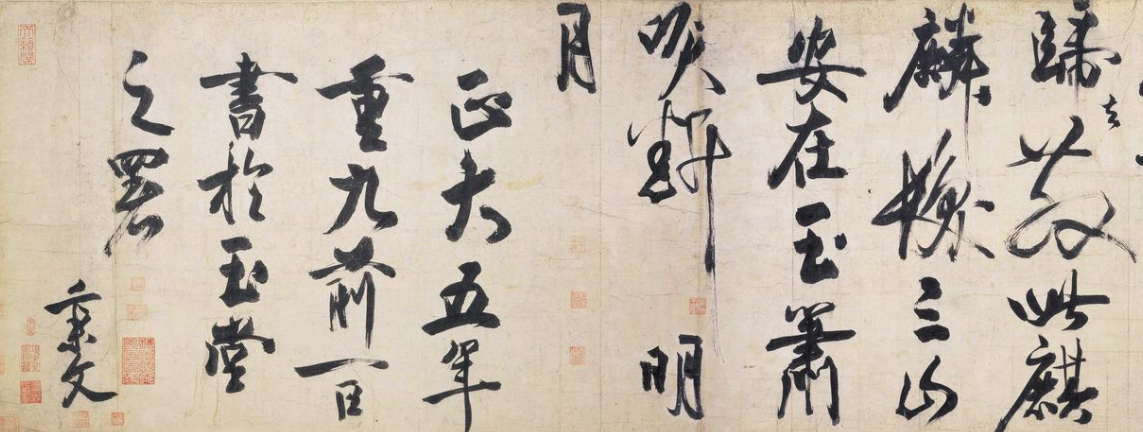 歸去散此麒
麟髮三山
安在玉簫
吹斷明
月
正大五年
重九前一日
書於玉堂
之署
秉文